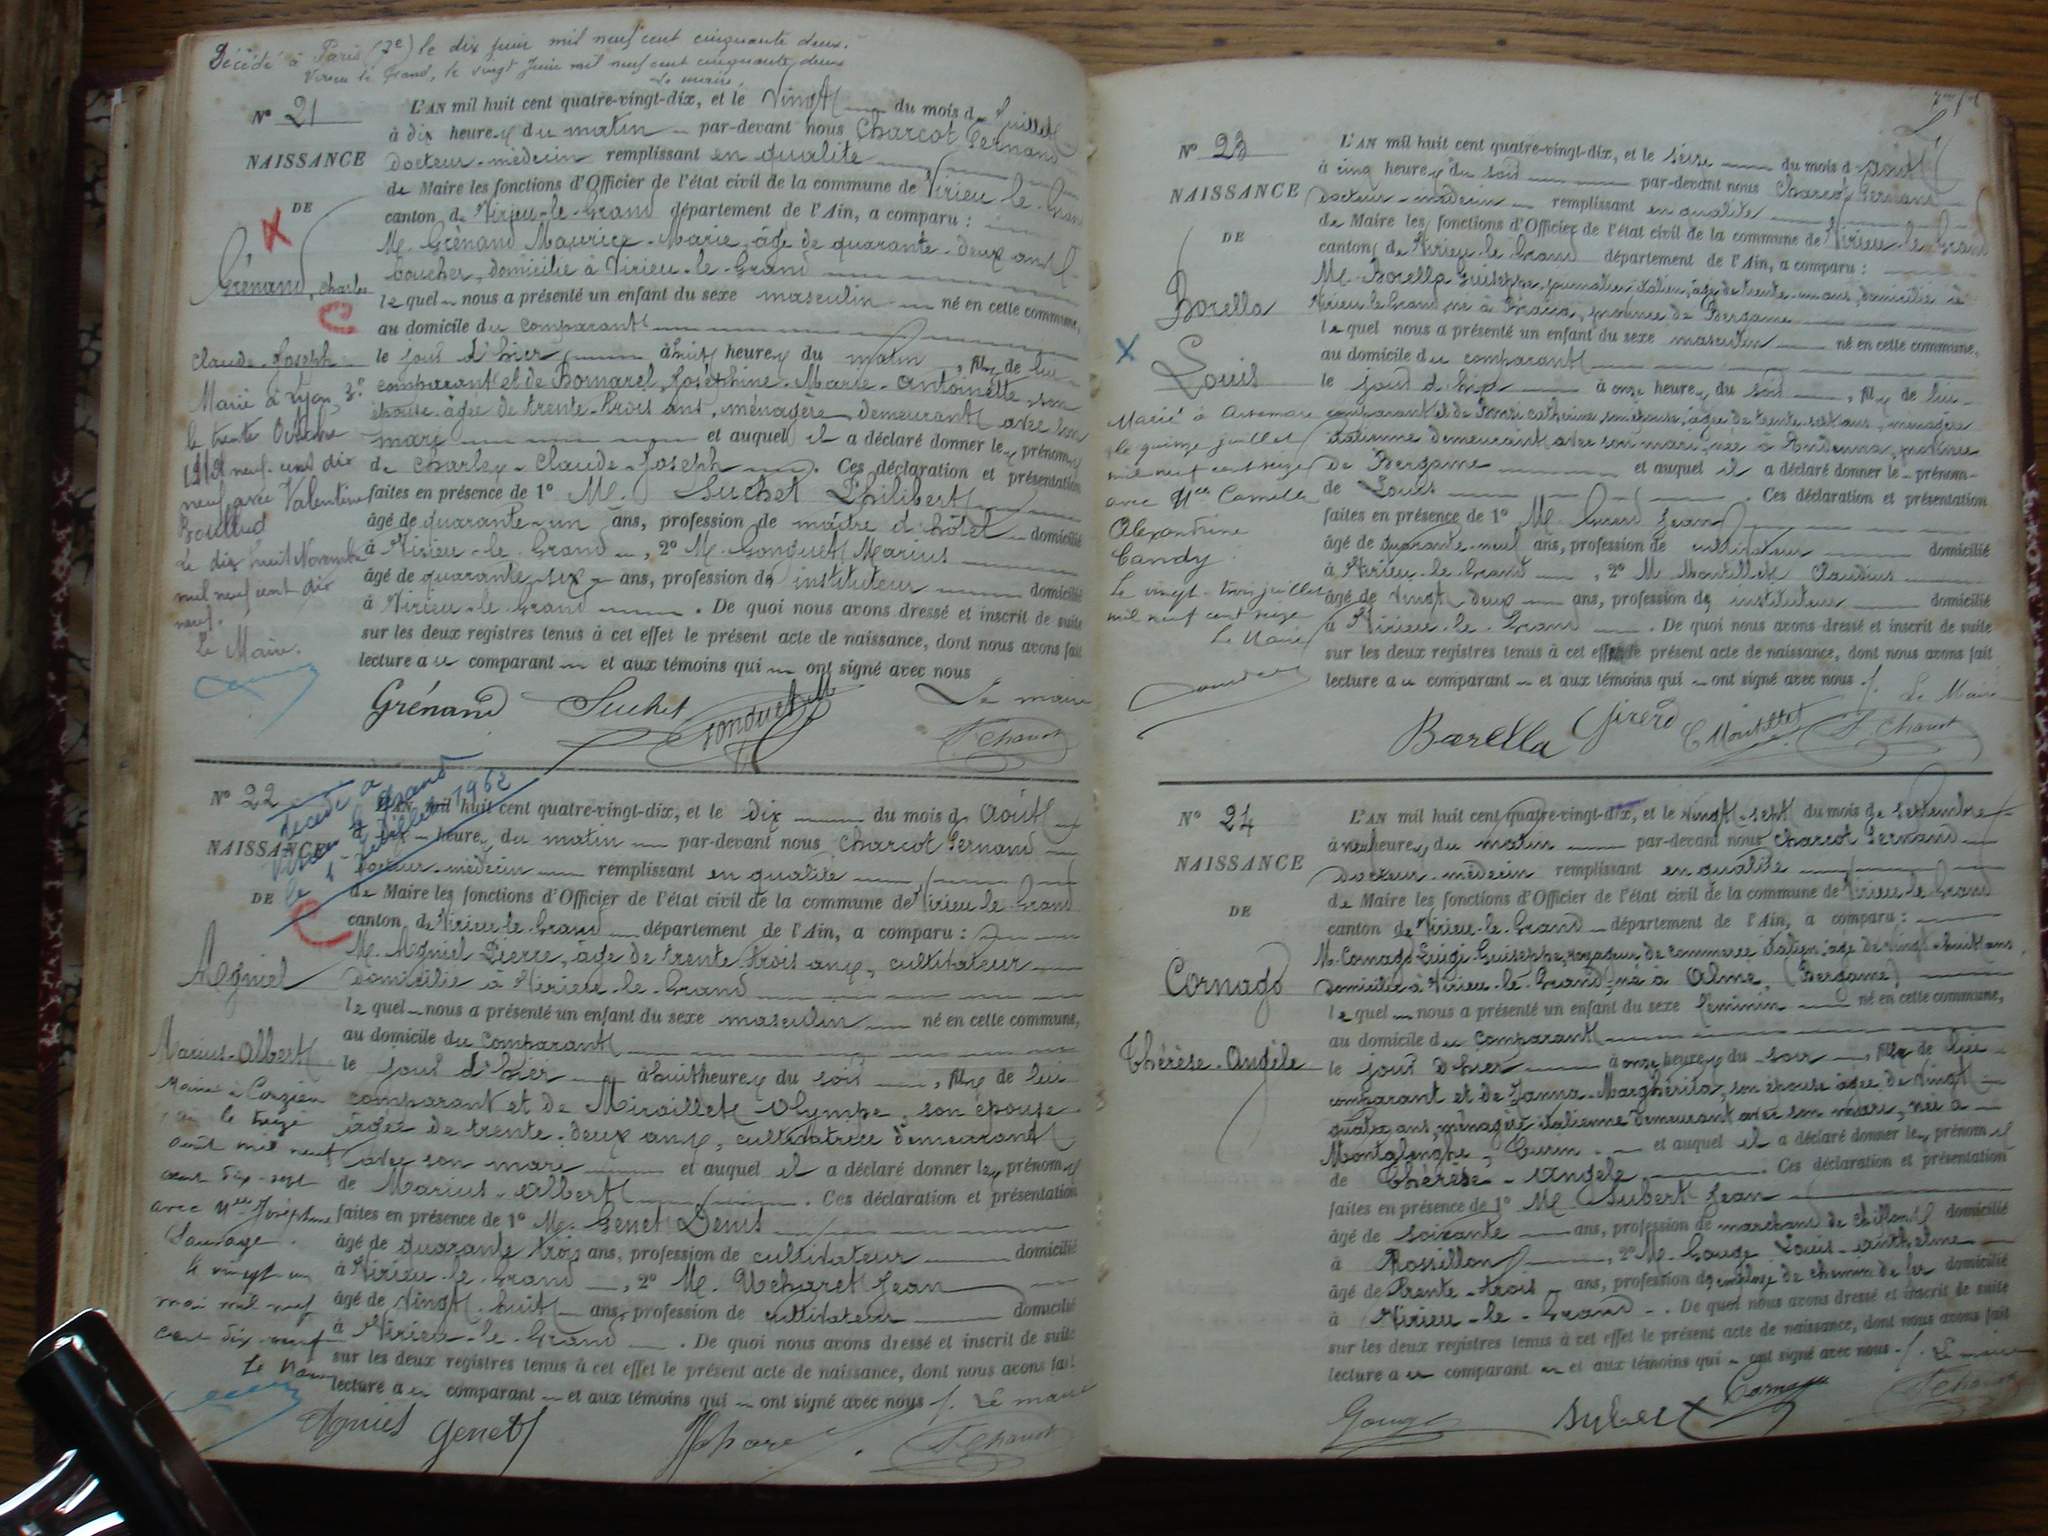 Décédé à Paris (3e) le dix juin mil neuf cent cinquante deux.
Virieu le Grand, le vingt Juin mil neuf cent cinquante deux
Le maire,
N° 21
NAISSANCE
DE
Grénand, Charles
Claude-Joseph
Marié à Lyon, 3e
le trente Octobre
neuf cent dix
neuf, avec Valentine
Le dix huit Novembre
mil neuf cent dix
neuf.
Le Maire.
L'AN mil huit cent quatre-vingt-dix, et le vingt du mois de Juillet
à dix heures du matin par-devant nous Charcot Fernand
docteur-médecin remplissant en qualité
de Maire les fonctions d'Officier de l'état civil de la commune de Virieu le Grand
canton de Virieu-le-Grand département de l'Ain, a comparu :
M. Grénand Maurice-Marie, âgé de quarante-deux ans
boucher, domicilié à Virieu-le-Grand
lequel nous a présenté un enfant du sexe masculin né en cette commune,
au domicile du comparant
le jour d'hier à huit heures du matin, fils de lui
comparant et de Bomarel, Joséphine-Marie-Antoinette son
épouse âgée de trente-trois ans, ménagère demeurant avec son
mari et auquel il a déclaré donner les prénoms
de Charles-Claude-Joseph. Ces déclaration et présentation
faites en présence de 1° M. Suchet Philibert
âgé de quarante-un ans, profession de maître d'hôtel domicilié
à Virieu-le-Grand, 2° M. Gonguet Marius
âgé de quarante-six ans, profession de instituteur domicilié
à Virieu-le-Grand. De quoi nous avons dressé et inscrit de suite
sur les deux registres tenus à cet effet le présent acte de naissance, dont nous avons fait
lecture au comparant et aux témoins qui ont signé avec nous
Grénand Suchet Gonguet Le maire
F. Charcot
N° 22
décédé à
Virieu le Grand
le 1 Juillet 1962
NAISSANCE
DE
Agniel
Marius-Albert
Marié à
le treize
août mil neuf
cent dix-sept
avec Melle Joséphine
Sauvage.
le vingt un
mai mil neuf
cent dix-neuf
Le Maire
L'AN mil huit cent quatre-vingt-dix, et le dix du mois de Août
à dix heures du matin par-devant nous Charcot Fernand
docteur-médecin remplissant en qualité
de Maire les fonctions d'Officier de l'état civil de la commune de Virieu le Grand
canton de Virieu-le-Grand département de l'Ain, a comparu :
M. Agniel Pierre, âgé de trente trois ans, cultivateur
domicilié à Virieu-le-Grand
lequel nous a présenté un enfant du sexe masculin né en cette commune,
au domicile du comparant
le jour d'hier à huit heures du soir, fils de lui
comparant et de Miraillet Olympe, son épouse
âgée de trente-deux ans, cultivatrice demeurant
avec son mari et auquel il a déclaré donner les prénoms
de Marius-Albert. Ces déclaration et présentation
faites en présence de 1° M. Genet Denis
âgé de quarante trois ans, profession de cultivateur domicilié
à Virieu-le-Grand, 2° M. Jean
âgé de vingt-huit ans, profession de cultivateur domicilié
à Virieu-le-Grand. De quoi nous avons dressé et inscrit de suite
sur les deux registres tenus à cet effet le présent acte de naissance, dont nous avons fait
lecture au comparant et aux témoins qui ont signé avec nous /. Le maire
Agniel Genet F. Charcot
N° 23
NAISSANCE
DE
Borella
Louis
Marié à
le quinze juillet
mil neuf cent seize
avec Melle Camille
Alexandrine
Candy.
Le vingt-trois juillet
mil neuf cent seize
Le Maire
L'AN mil huit cent quatre-vingt-dix, et le seize du mois d'août
à cinq heures du soir par-devant nous Charcot Fernand
docteur-médecin remplissant en qualité
de Maire les fonctions d'Officier de l'état civil de la commune de Virieu-le-Grand
canton de Virieu-le-Grand département de l'Ain, a comparu :
M. Borella Guiseppe, journalier italien, âgé de trente-un ans, domicilié à
Virieu le Grand né à Bracca, province de Bergame
lequel nous a présenté un enfant du sexe masculin né en cette commune,
au domicile du comparant
le jour d'hier à onze heures du soir, fils de lui
comparant et de Catherine son épouse, âgée de trente-sept ans, ménagère
italienne demeurant avec son mari, née à province
de Bergame et auquel il a déclaré donner le prénom
de Louis. Ces déclaration et présentation
faites en présence de 1° M. Girerd Jean
âgé de quarante-neuf ans, profession de cultivateur domicilié
à Virieu-le-Grand, 2° M Montillet Claudius
âgé de vingt-deux ans, profession de instituteur domicilié
à Virieu-le-Grand. De quoi nous avons dressé et inscrit de suite
sur les deux registres tenus à cet effet le présent acte de naissance, dont nous avons fait
lecture au comparant et aux témoins qui ont signé avec nous /. Le Maire
Barella Girerd C Montillet F. Charcot
N° 24
NAISSANCE
DE
Cornago
Thérèse-Angèle
L'AN mil huit cent quatre-vingt-dix, et le vingt-sept du mois de Septembre
à neuf heures du matin par-devant nous Charcot Fernand
docteur-médecin remplissant en qualité
de Maire les fonctions d'Officier de l'état civil de la commune de Virieu-le-Grand
canton de Virieu-le-Grand département de l'Ain, a comparu :
M. Cornago Luigi-Guiseppe, voyageur de commerce italien, âgé de vingt-huit ans,
domicilié à Virieu-le-Grand, né à Alme, (Bergame)
lequel nous a présenté un enfant du sexe féminin né en cette commune,
au domicile du comparant
le jour d'hier à onze heures du soir, fille de lui
comparant et de Janna-Marghérita, son épouse âgée de vingt
quatre ans, ménagère italienne demeurant avec son mari, née à
Turin et auquel il a déclaré donner les prénoms
de Thérèse-Angèle. Ces déclaration et présentation
faites en présence de 1° M. Subert Jean
âgé de soixante ans, profession de marchand de chiffons domicilié
à Rossillon, 2° M. Gouge Louis-Anthelme
âgé de trente-trois ans, profession de employé de chemin de fer domicilié
à Virieu-le-Grand. De quoi nous avons dressé et inscrit de suite
sur les deux registres tenus à cet effet le présent acte de naissance, dont nous avons fait
lecture au comparant et aux témoins qui ont signé avec nous /. Le maire
Gouge Cornago F. Charcot